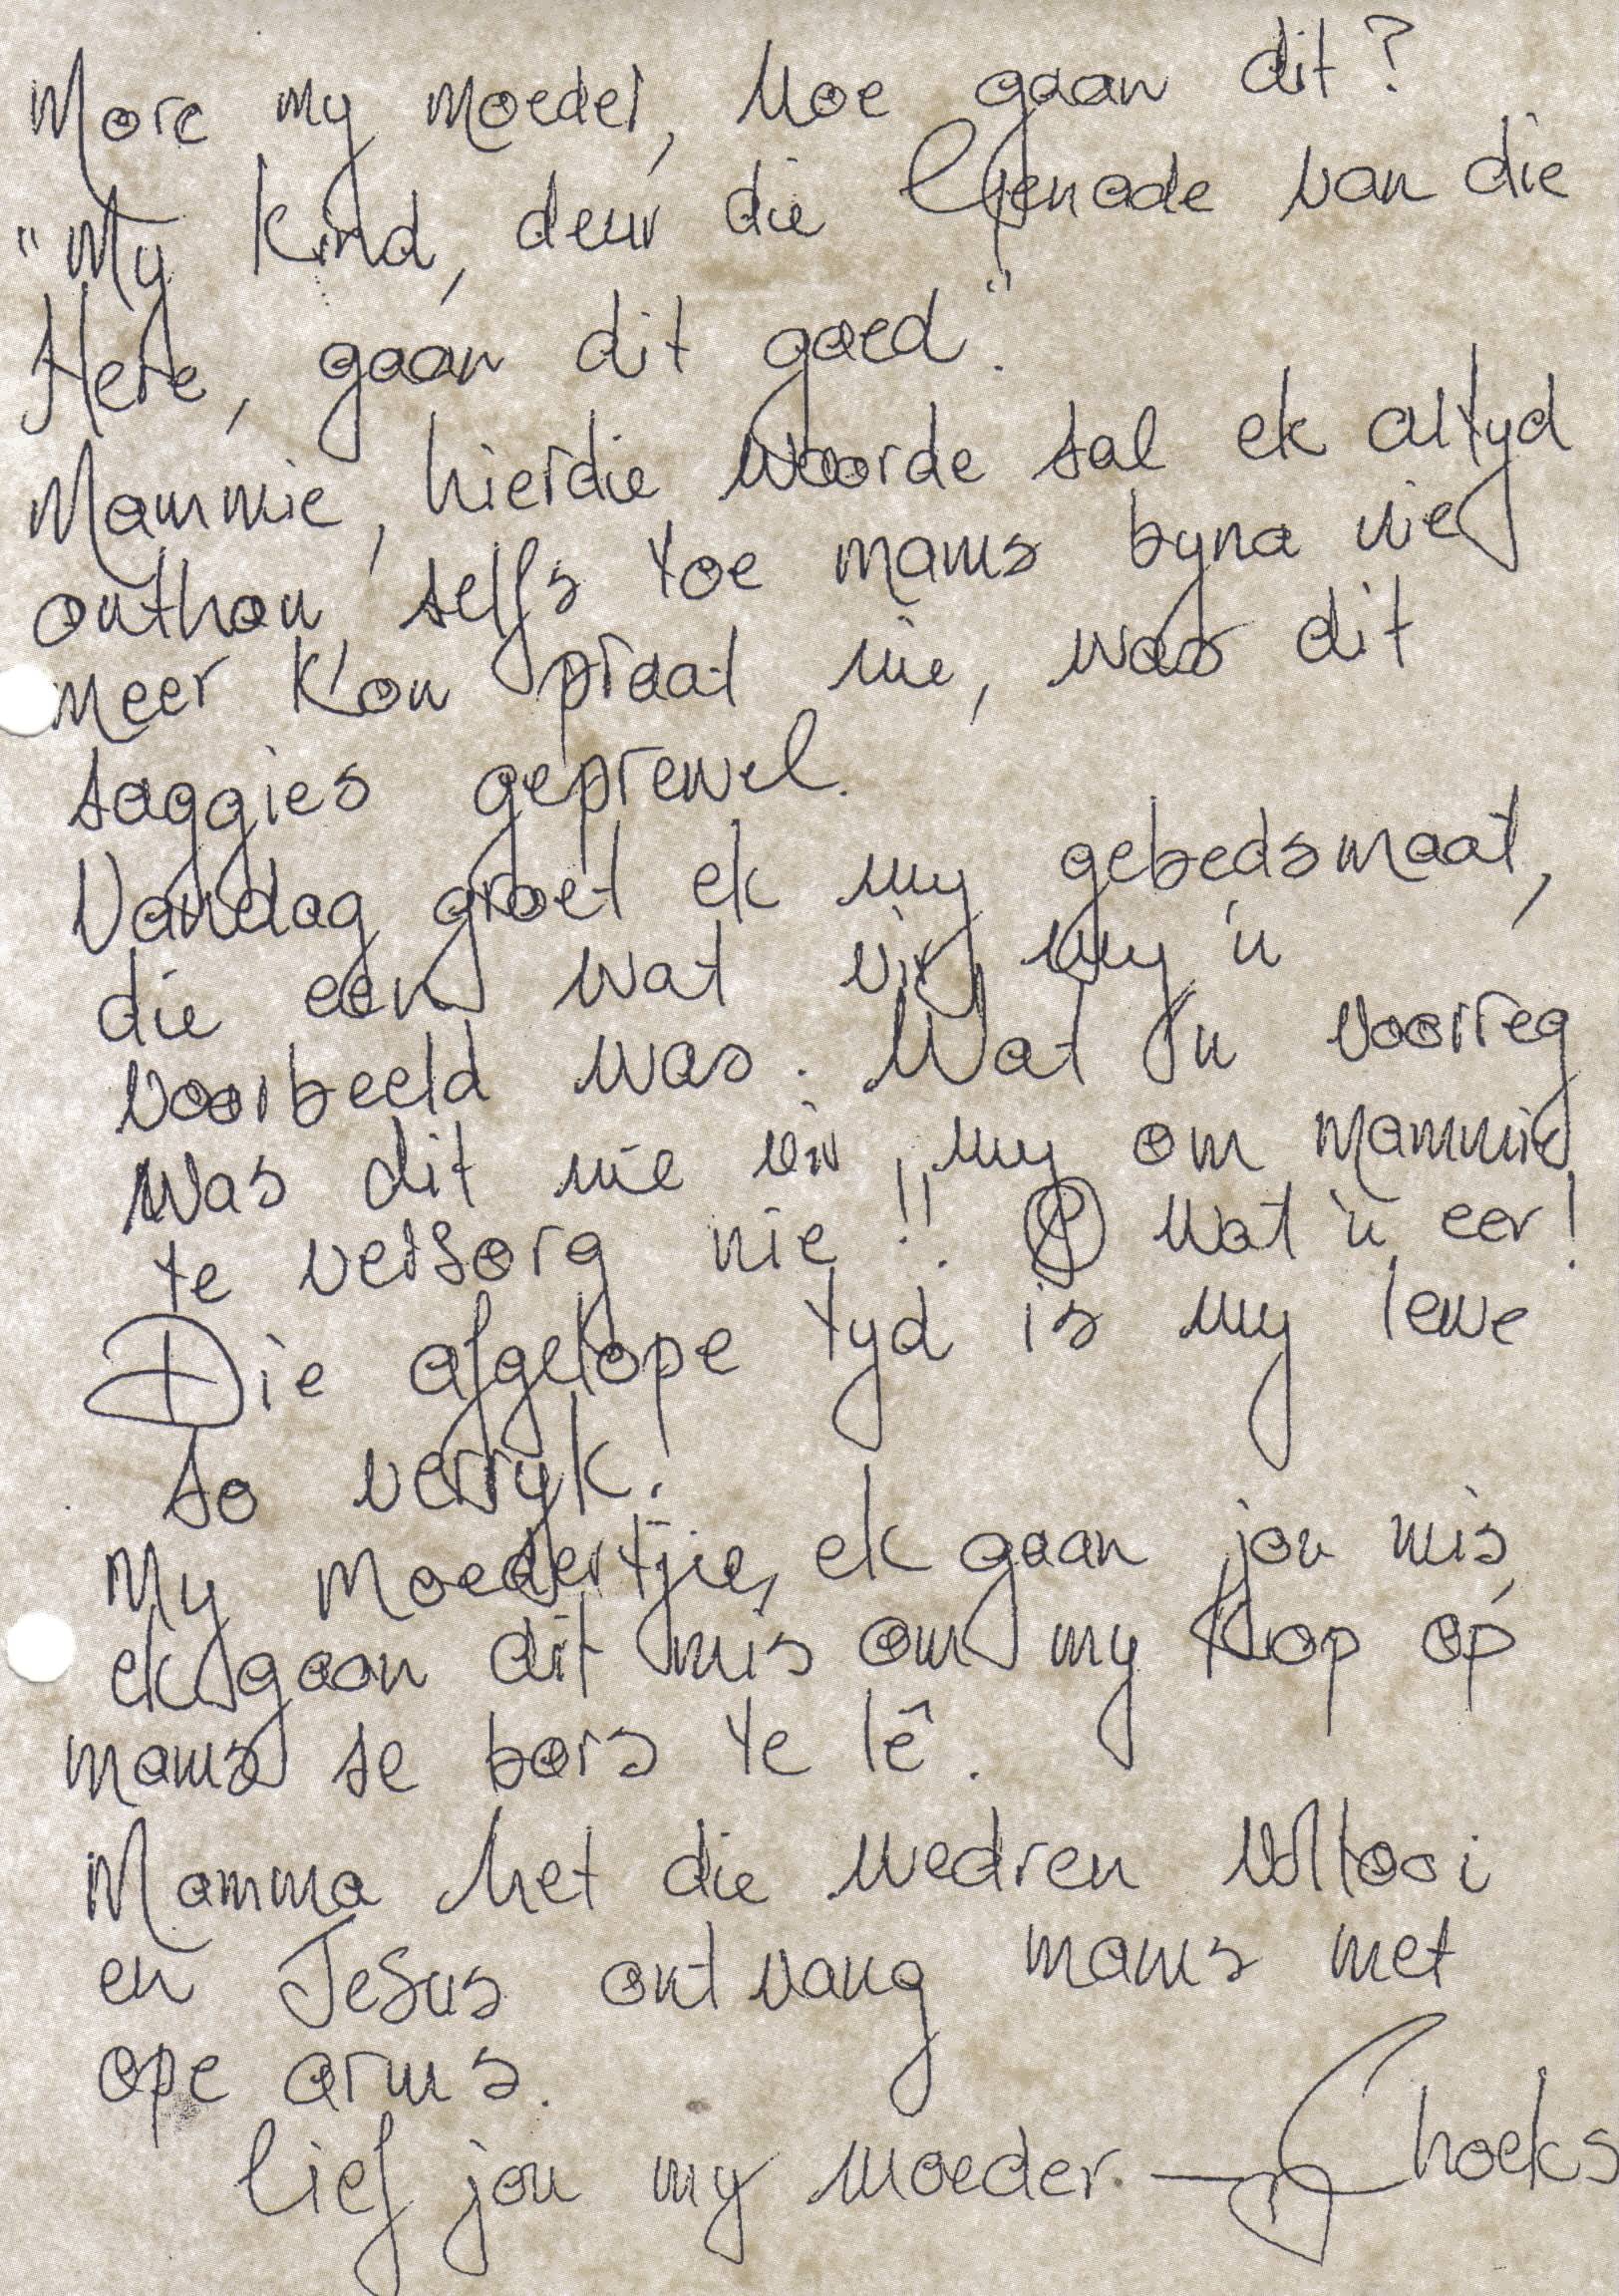 More my moeder, hoe gaan dit?
"My kind, deur die Genade van die
Here, gaan dit goed".
Mammie, hierdie woorde sal ek altyd
onthou, selfs toe mams byna nie
meer kon praat nie, was dit
saggies geprewel.
Vandag groet ek my gebedsmaat,
die een wat vir my 'n
voorbeeld was. Wat 'n voorreg
was dit nie vir my om mammie
te versorg nie!! Wat 'n eer!
Die afgelope tyd is my lewe
so verryk!
My Moedertjie, ek gaan jou mis,
ek gaan dit mis om my kop op
mams se bors te lê.
Mamma het die wedren voltooi
en Jesus ontvang mams met
ope arms.
lief jou my moeder. Choeks